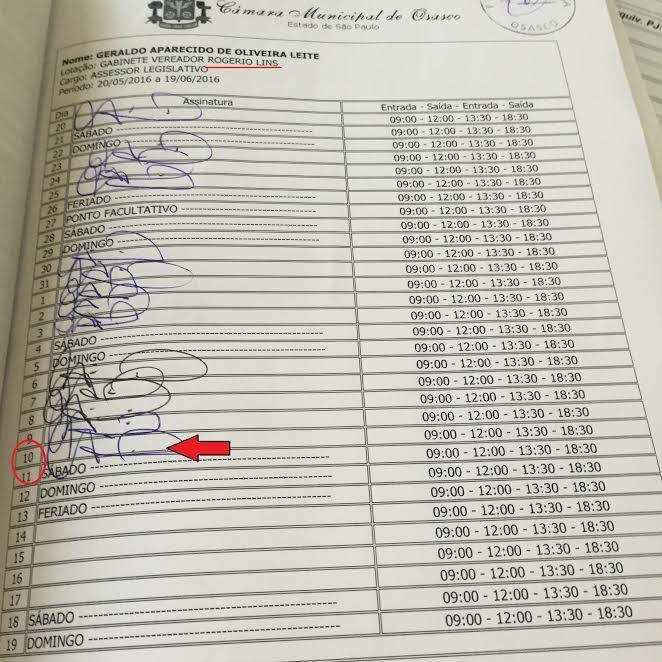 Câmara Municipal de Osasco
Estado de São Paulo
OSASCO
quiv. P.J.
Nome: GERALDO APARECIDO DE OLIVEIRA LEITE
Lotação: GABINETE VEREADOR ROGERIO LINS
Cargo: ASSESSOR LEGISLATIVO
Período: 20/05/2016 a 19/06/2016
Dia Assinatura Entrada - Saída - Entrada - Saída
20 09:00 - 12:00 - 13:30 - 18:30
21 SÁBADO 09:00 - 12:00 - 13:30 - 18:30
22 DOMINGO 09:00 - 12:00 - 13:30 - 18:30
23 09:00 - 12:00 - 13:30 - 18:30
24 09:00 - 12:00 - 13:30 - 18:30
25 09:00 - 12:00 - 13:30 - 18:30
26 FERIADO 09:00 - 12:00 - 13:30 - 18:30
27 PONTO FACULTATIVO 09:00 - 12:00 - 13:30 - 18:30
28 SÁBADO 09:00 - 12:00 - 13:30 - 18:30
29 DOMINGO 09:00 - 12:00 - 13:30 - 18:30
30 09:00 - 12:00 - 13:30 - 18:30
31 09:00 - 12:00 - 13:30 - 18:30
1 09:00 - 12:00 - 13:30 - 18:30
2 09:00 - 12:00 - 13:30 - 18:30
3 09:00 - 12:00 - 13:30 - 18:30
4 SÁBADO 09:00 - 12:00 - 13:30 - 18:30
5 DOMINGO 09:00 - 12:00 - 13:30 - 18:30
6 09:00 - 12:00 - 13:30 - 18:30
7 09:00 - 12:00 - 13:30 - 18:30
8 09:00 - 12:00 - 13:30 - 18:30
9 09:00 - 12:00 - 13:30 - 18:30
10 09:00 - 12:00 - 13:30 - 18:30
11 SÁBADO 09:00 - 12:00 - 13:30 - 18:30
12 DOMINGO 09:00 - 12:00 - 13:30 - 18:30
13 FERIADO 09:00 - 12:00 - 13:30 - 18:30
14 09:00 - 12:00 - 13:30 - 18:30
15 09:00 - 12:00 - 13:30 - 18:30
16 09:00 - 12:00 - 13:30 - 18:30
17 09:00 - 12:00 - 13:30 - 18:30
18 SÁBADO 09:00 - 12:00 - 13:30 - 18:30
19 DOMINGO 09:00 - 12:00 - 13:30 - 18:30